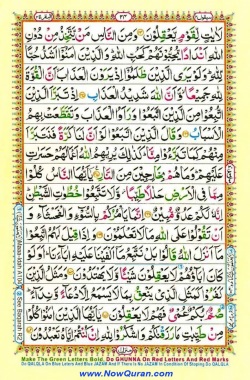 لَاٰيٰتٍ لِّقَوْمٍ يَّعْقِلُوْنَ وَمِنَ النَّاسِ مَنْ يَّتَّخِذُ مِنْ دُوْنِ
اللّٰهِ اَنْدَادًا يُّحِبُّوْنَهُمْ كَحُبِّ اللّٰهِ وَالَّذِيْنَ اٰمَنُوْٓا اَشَدُّ حُبًّا
لِّلّٰهِ وَلَوْ يَرَى الَّذِيْنَ ظَلَمُوْٓا اِذْ يَرَوْنَ الْعَذَابَ اَنَّ الْقُوَّةَ
لِلّٰهِ جَمِيْعًا وَّاَنَّ اللّٰهَ شَدِيْدُ الْعَذَابِ اِذْ تَبَرَّاَ الَّذِيْنَ
اتُّبِعُوْا مِنَ الَّذِيْنَ اتَّبَعُوْا وَرَاَوُا الْعَذَابَ وَتَقَطَّعَتْ بِهِمُ
الْاَسْبَابُ وَقَالَ الَّذِيْنَ اتَّبَعُوْا لَوْ اَنَّ لَنَا كَرَّةً فَنَتَبَرَّاَ
مِنْهُمْ كَمَا تَبَرَّءُوْا مِنَّا كَذٰلِكَ يُرِيْهِمُ اللّٰهُ اَعْمَالَهُمْ حَسَرٰتٍ
عَلَيْهِمْ وَمَا هُمْ بِخٰرِجِيْنَ مِنَ النَّارِ يٰٓاَيُّهَا النَّاسُ كُلُوْا
مِمَّا فِى الْاَرْضِ حَلٰلًا طَيِّبًا وَّلَا تَتَّبِعُوْا خُطُوٰتِ الشَّيْطٰنِ
اِنَّهٗ لَكُمْ عَدُوٌّ مُّبِيْنٌ اِنَّمَا يَاْمُرُكُمْ بِالسُّوْٓءِ وَالْفَحْشَآءِ وَ
اَنْ تَقُوْلُوْا عَلَى اللّٰهِ مَا لَا تَعْلَمُوْنَ وَاِذَا قِيْلَ لَهُمُ اتَّبِعُوْا
مَآ اَنْزَلَ اللّٰهُ قَالُوْا بَلْ نَتَّبِعُ مَآ اَلْفَيْنَا عَلَيْهِ اٰبَآءَنَا اَوَلَوْ
كَانَ اٰبَآؤُهُمْ لَا يَعْقِلُوْنَ شَيْئًا وَّلَا يَهْتَدُوْنَ وَمَثَلُ
الَّذِيْنَ كَفَرُوْا كَمَثَلِ الَّذِيْ يَنْعِقُ بِمَا لَا يَسْمَعُ اِلَّا دُعَآءً وَّنِدَآءً
صُمٌّۢ بُكْمٌ عُمْيٌ فَهُمْ لَا يَعْقِلُوْنَ يٰٓاَيُّهَا الَّذِيْنَ اٰمَنُوْا كُلُوْا
مِنْ طَيِّبٰتِ مَا رَزَقْنٰكُمْ وَاشْكُرُوْا لِلّٰهِ اِنْ كُنْتُمْ اِيَّاهُ تَعْبُدُوْنَ
Make The Green Letters Bold. Do GHUNNA On Red Letters And Red Marks
Do QALQLA On Blue Letters And Blue JAZAM And If There Is No JAZAM In Condition Of Stoping Do QALQLA
www.NowQuran.com